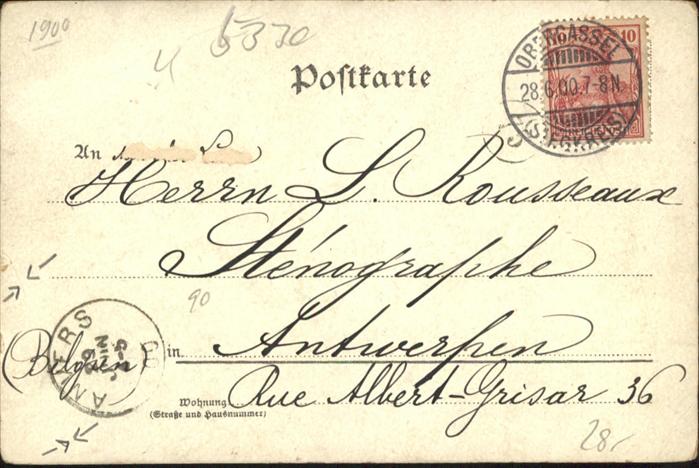 1900
5330
Postkarte
10
OBERCASSEL
28.6.00.7-8N.
(SIEGKREIS)
An
Herrn L. Rousseaux
Sténographe
90
in Antwerpen
(Belgien)
ANVERS
Wohnung
(Straße und Hausnummer)
Rue Albert-Grisar 36
28,-